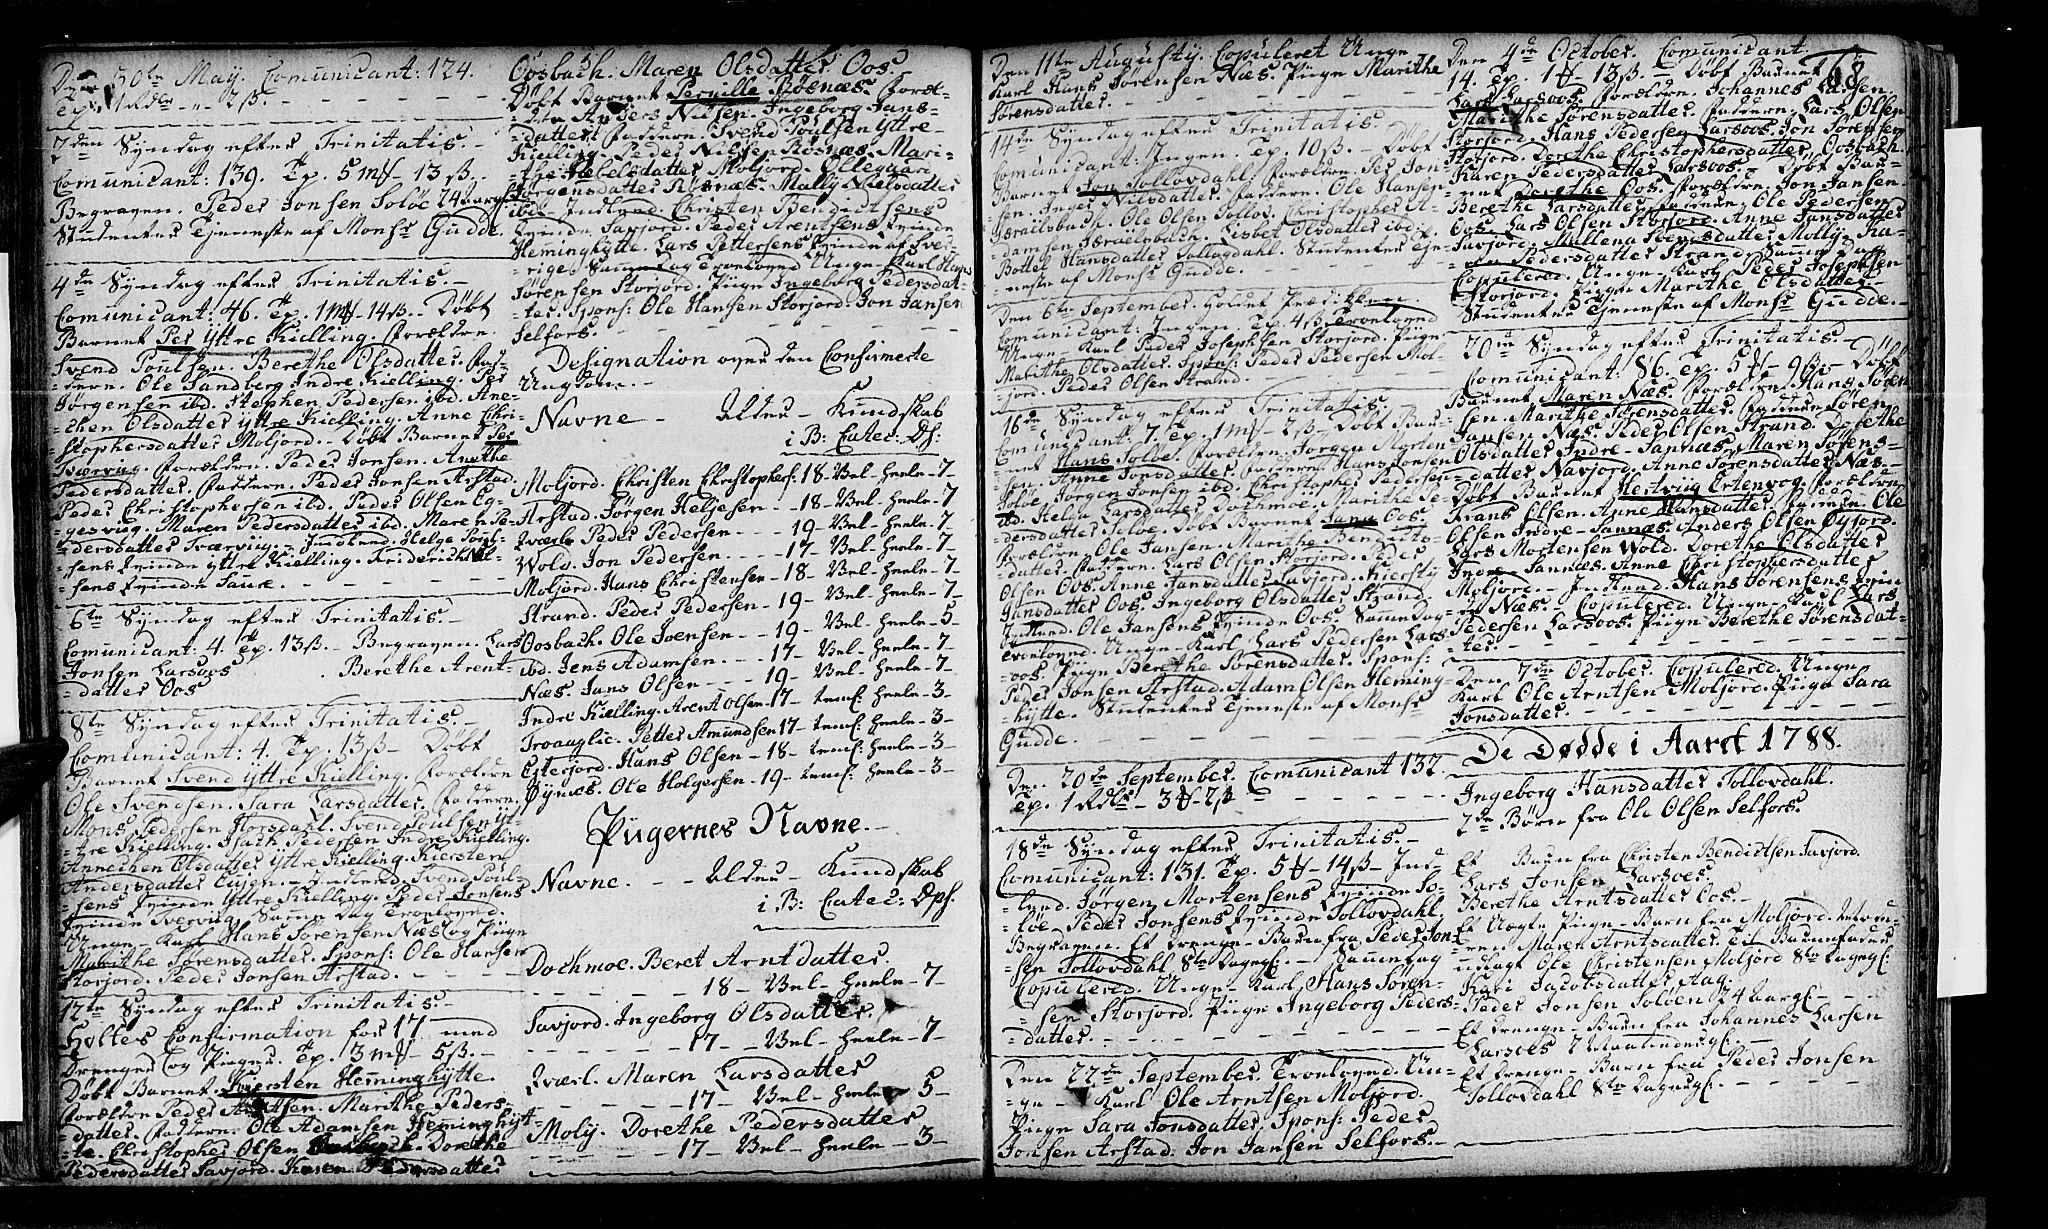 Den 30te May. Comunicant: 124.
Tep. 1 Rdlr - 2 ß.
2den Syndag efter Trinitatis.
Comunicant: 139. Tep. 5 mf - 13 ß.
Begraven. Peder Jonsen Soløe 24 aar gl.
Studenter Tjeneste af Monsr Gudde.
4de Syndag efter Trinitatis.
Comunicant: 46. Tep. 1 mf - 14 ß. Døbt
Barnet Per Yttre Kielling. Forældre.
Svend Poulsen. Berethe Olsdatter. Fad-
dere. Ole Sandberg Indre Kielling. Per
Jørgensen ibd. Stephen Pedersen ibd. Ane-
chen Olsdatter Yttre Kielling. Anne Chri-
stophersdatter Moljord. Døbt Barnet Per
Tværvig. Forældre. Peder Jonsen. Anethe
Pedersdatter. Faddere. Peder Jonsen Arstad.
Peder Christophersen ibd. Peder Olsen Eg-
gesvig. Maren Pedersdatter ibd. Maren Pe-
dersdatter Tværvig. Indled. Helge Poul-
sens Qvinde Yttre Kielling. Friderich
sens Qvinde Saure.
6te Syndag efter Trinitatis.
Comunicant: 4. Tep. 13 ß. Begraven. Lars
Jonsen Larsoos. Berethe Arent-
datter Oos
8te Syndag efter Trinitatis.
Comunicant: 4. Tep. 13 ß - Døbt
Barnet Svend Yttre Kielling. Forældre
Ole Svendsen. Sara Larsdatter. Faddere.
Mons Pedersen Horsdahl. Svend Poulsen Yt-
tre Kielling. Isach Pedersen Indre Kielling.
Annechen Olsdatter Yttre Kielling. Kiersten
Andersdatter. Indled. Svend Poul-
sens Qvinde Yttre Kielling. Peder Jonsens
Qvinde Tvervig. Samme Dag Trolovede
Unge - Karl Hans Sørensen Næs og Pige
Marithe Sørensdatter. Spons: Ole Hansen
Storjord. Peder Jonsen Arstad.
12te Syndag efter Trinitatis.
Holtes Confirmation for 17 med
Drenge og Piger. Tep. 3 mf - 5 ß.
Døbt Barnet Kiersten Hemminghytte.
Forældre Peder Arntsen. Marithe Peders-
datter. Faddere. Ole Adamsen Heminghyt-
te. Christopher Olsen Dorethe
Pedersdatter Savjord. Karen Pedersdatter
Oosbach. Maren Olsdatter Oos.
Døbt Barnet Pernille Røsnæs. Foræl-
dre Anders Nilsen. Ingeborg Jans-
datter. Faddere. Svend Poulsen Yttre-
Kielling. Peder Nilsen Røsnæs. Mari-
the Helelsdatter Moljord. Ellegaar
Jørgensdatter Røsnæs. Mally Nielsdatter
ibd. Indled. Christen Bendictsens
Qvinde Savjord. Peder Arentsens Qvinde
Hemminghytte. Lars Pettersens Qvinde af Sve-
rige. Samme Dag Trolovede Unge - Karl Hans
Sørensen Storjord. Pige Ingeborg Pedersdat-
ter. Spons: Ole Hansen Storjord. Jon Jansen
Selfors.
Designation over den Confirmerte
Ungdom.
Navne - Alder - Kundskab
i B: Catec: Ps:
Moljord. Christen Christophers: 18 - Vel - Heele - 7 -
Arstad. Jørgen Heljesen - 18 - Vel - Heele - 7
Qværl. Peder Pedersen - 19 - Vel - Heele - 7
Wold. Jon Pedersen - 17 - Vel - Heele - 7
Moljord. Hans Christensen - 18 - Vel - Heele - 7
Strand. Peder Pedersen - 19 - Vel - Heele - 7
Oosbach. Ole Ivensen - 19 - Vel - Heele - 5
ibd. Jens Adamsen - 17 - Vel - Heele - 7
Næs. Jans Olsen - 19 - Vel - Heele - 7
Indre Kielling. Arent Olsen - 17 - temf. Heele - 3
Troauglie. Petter Amundsen 17 - temf. Heele - 3
Esterfjord. Hans Olsen - 18 - temf. Heele - 3
Øynæs. Ole Holgersen - 19 - temf. Heele - 3
Pigernes Navne.
Navne. - Alder - Kundskab
i B: Catec: Dps.
Dochmoe. Beret Arntdatter
18 - Vel - Heele - 7
Savjord. Ingeborg Olsdatter
17 - Vel - Heele - 7
Qværl. Maren Larsdatter
17 - Vel - Heele - 5
Molj. Dorethe Pedersdatter
17 - Vel - Heele - 3
Den 11te Augusty. Copuleret Unge
Karl Hans Sørensen Næs. Pige Marithe
Sørensdatter.
14de Syndag efter Trinitatis.
Comunicant: Ingen. Tep. 10 ß - Døbt
Barnet Jon Tollovdahl. Forældre. Per Jon-
sen. Inger Nilsdatter. Faddere. Ole Hansen
Israelsbach. Ole Olsen Tollov. Christopher A-
damsen Israelsbach. Lisbet Olsdatter ibd.
Bottel Hansdatter Tollogdahl. Studenter Tje-
neste af Monsr Gudde.
Den 6te September. Holdet Prædikken.
Comunicant: Ingen. Tep. 4 ß Trolovede
Unge - Karl Peder Josephsen Storjord. Pige
Marithe Olsdatter. Spons: Peder Pedersen Mol-
jord. Peder Olsen Strand.
16de Syndag efter Trinitatis.
Comunicant: 7. Tep. 1 mf - 2 ß - Døbt Bar-
net Hans Soløe. Forældre. Jørgen Morten-
sen. Anne Jonsdatter. Faddere. Hans Jonsen
Soløe. Jørgen Jonsen ibd. Christopher Pedersen
ibd. Helga Larsdatter Dochmoe. Marithe Pe-
dersdatter Soløe. Døbt Barnet Jann Oos.
Forældre. Ole Jansen. Marithe Bendicts-
datter. Faddere. Lars Olsen Storjord. Peder
Olsen Oos. Anne Jansdatter Savjord. Kiersty
Jansdatter Oos. Ingeborg Olsdatter Strand.
Indled. Ole Jansens Qvinde Oos. Samme Dag
Trolovede. Unge - Karl Lars Pedersen Lars-
oos. Pige Berethe Sørensdatter. Spons:
Peder Jonsen Arstad. Adam Olsen Heming-
hytte. Studenter Tjeneste af Monsr
Gudde.
Den 20de September. Comunicant 132
Tep. 1 Rdlr - 3 - 2 ß
18de Syndag efter Trinitatis.
Comunicant: 131. Tep. 5 - 14 ß - Ind-
led. Jørgen Mortensens Qvinde So-
løe. Peder Jonsens Qvinde Tollovdahl.
Begraven. Et Drenge - Barn fra Peder Jon-
sen Tollovdahl 8te Dage gl. - Samme Dag
Copulered. Unge - Karl Hans Søren-
sen Storjord. Pige Ingeborg Peders-
datter.
Den 22de September. Trolovede. Un-
ge - Karl Ole Arntsen Moljord.
Pige Sara Jonsdatter. Spons: Peder
Jonsen Arstad. Jon Jansen Selfors.
68
Den 4de October. Comunicant.
14. Tep. 1 - 13 ß. - Døbt Barnet
Lars Larsoos. Forældre. Johannes Larsen.
Marithe Sørensdatter. Faddere. Lars Olsen
Storjord. Hans Pedersen Larsoos. Jon Sørensen
Storjord. Dorethe Christophersdatter Oosbach.
Karen Pedersdatter Larsoos. - Døbt Bar-
net Dorethe Oos. Forældre. Jon Jansen.
Berethe Larsdatter. Faddere. Ole Pedersen
Oos. Lars Olsen Storjord. Anne Jansdatter
Savjord. Mallena Svensdatter Mollj. Ka-
ren Pedersdatter Strand. Samme Dag
Copulered. Unge - Karl Peder Josephsen
Storjord. Pige Marithe Olsdatter.
Studenter Tjeneste af Monsr Gudde.
20de Syndag efter Trinitatis.
Comunicant: 86. Tep. 5 - 9 ß - Døbt
Barnet Maren Næs. Forældre. Hans Søren-
sen. Marithe Sørensdatter. Faddere Søren
Jansen Næs. Peder Olsen Strand. Dorethe
Olsdatter Indre - Sannæs. Maren Sørens-
datter Navjord. Anne Sørensdatter Næs.
Døbt Barnet Hertvüg Ertenvog. Forældre
Frans Olsen. Anne Hansdatter. Faddere. Ole
Olsen Indre - Sannæs. Anders Olsen Øyjord.
Lars Mortensen Wold. Dorethe Olsdatter
Indre Sannæs. Anne Christophersdatter
Moljord. - Indled. Hans Sørensens Qvin-
de Næs. Copulered. Unge - Karl Lars
Pedersen Larsoos. Pige Berethe Sørensdat-
ter.
Den 7de October. Copulered. Unge
Karl Ole Arntsen Moljord. Pige Sara
Jonsdatter.
De Dødde i Aaret 1788.
Ingeborg Hansdatter Tollovdahl.
2de Børn fra Ole Olsen Selfors.
Et Barn fra Christen Bendictsen Savjord.
Lars Jonsen Larsoes.
Berethe Arntsdatter Oos.
Et Uægte Pige - Barn fra Moljord. Mode-
ren Maren Arntsdatter. Til Barnefader
udlagt Ole Christensen Moljord 8te Dage gl.
Kari Jacobsdatter Stag
Peder Jonsen Soløen 24 aar gl.
Et Drenge - Barn fra Johannes Larsen
Larsoes 2 Maaneder gl.
Et Drenge - Barn fra Peder Jonsen
Tollovdahl 8te Dage gl.